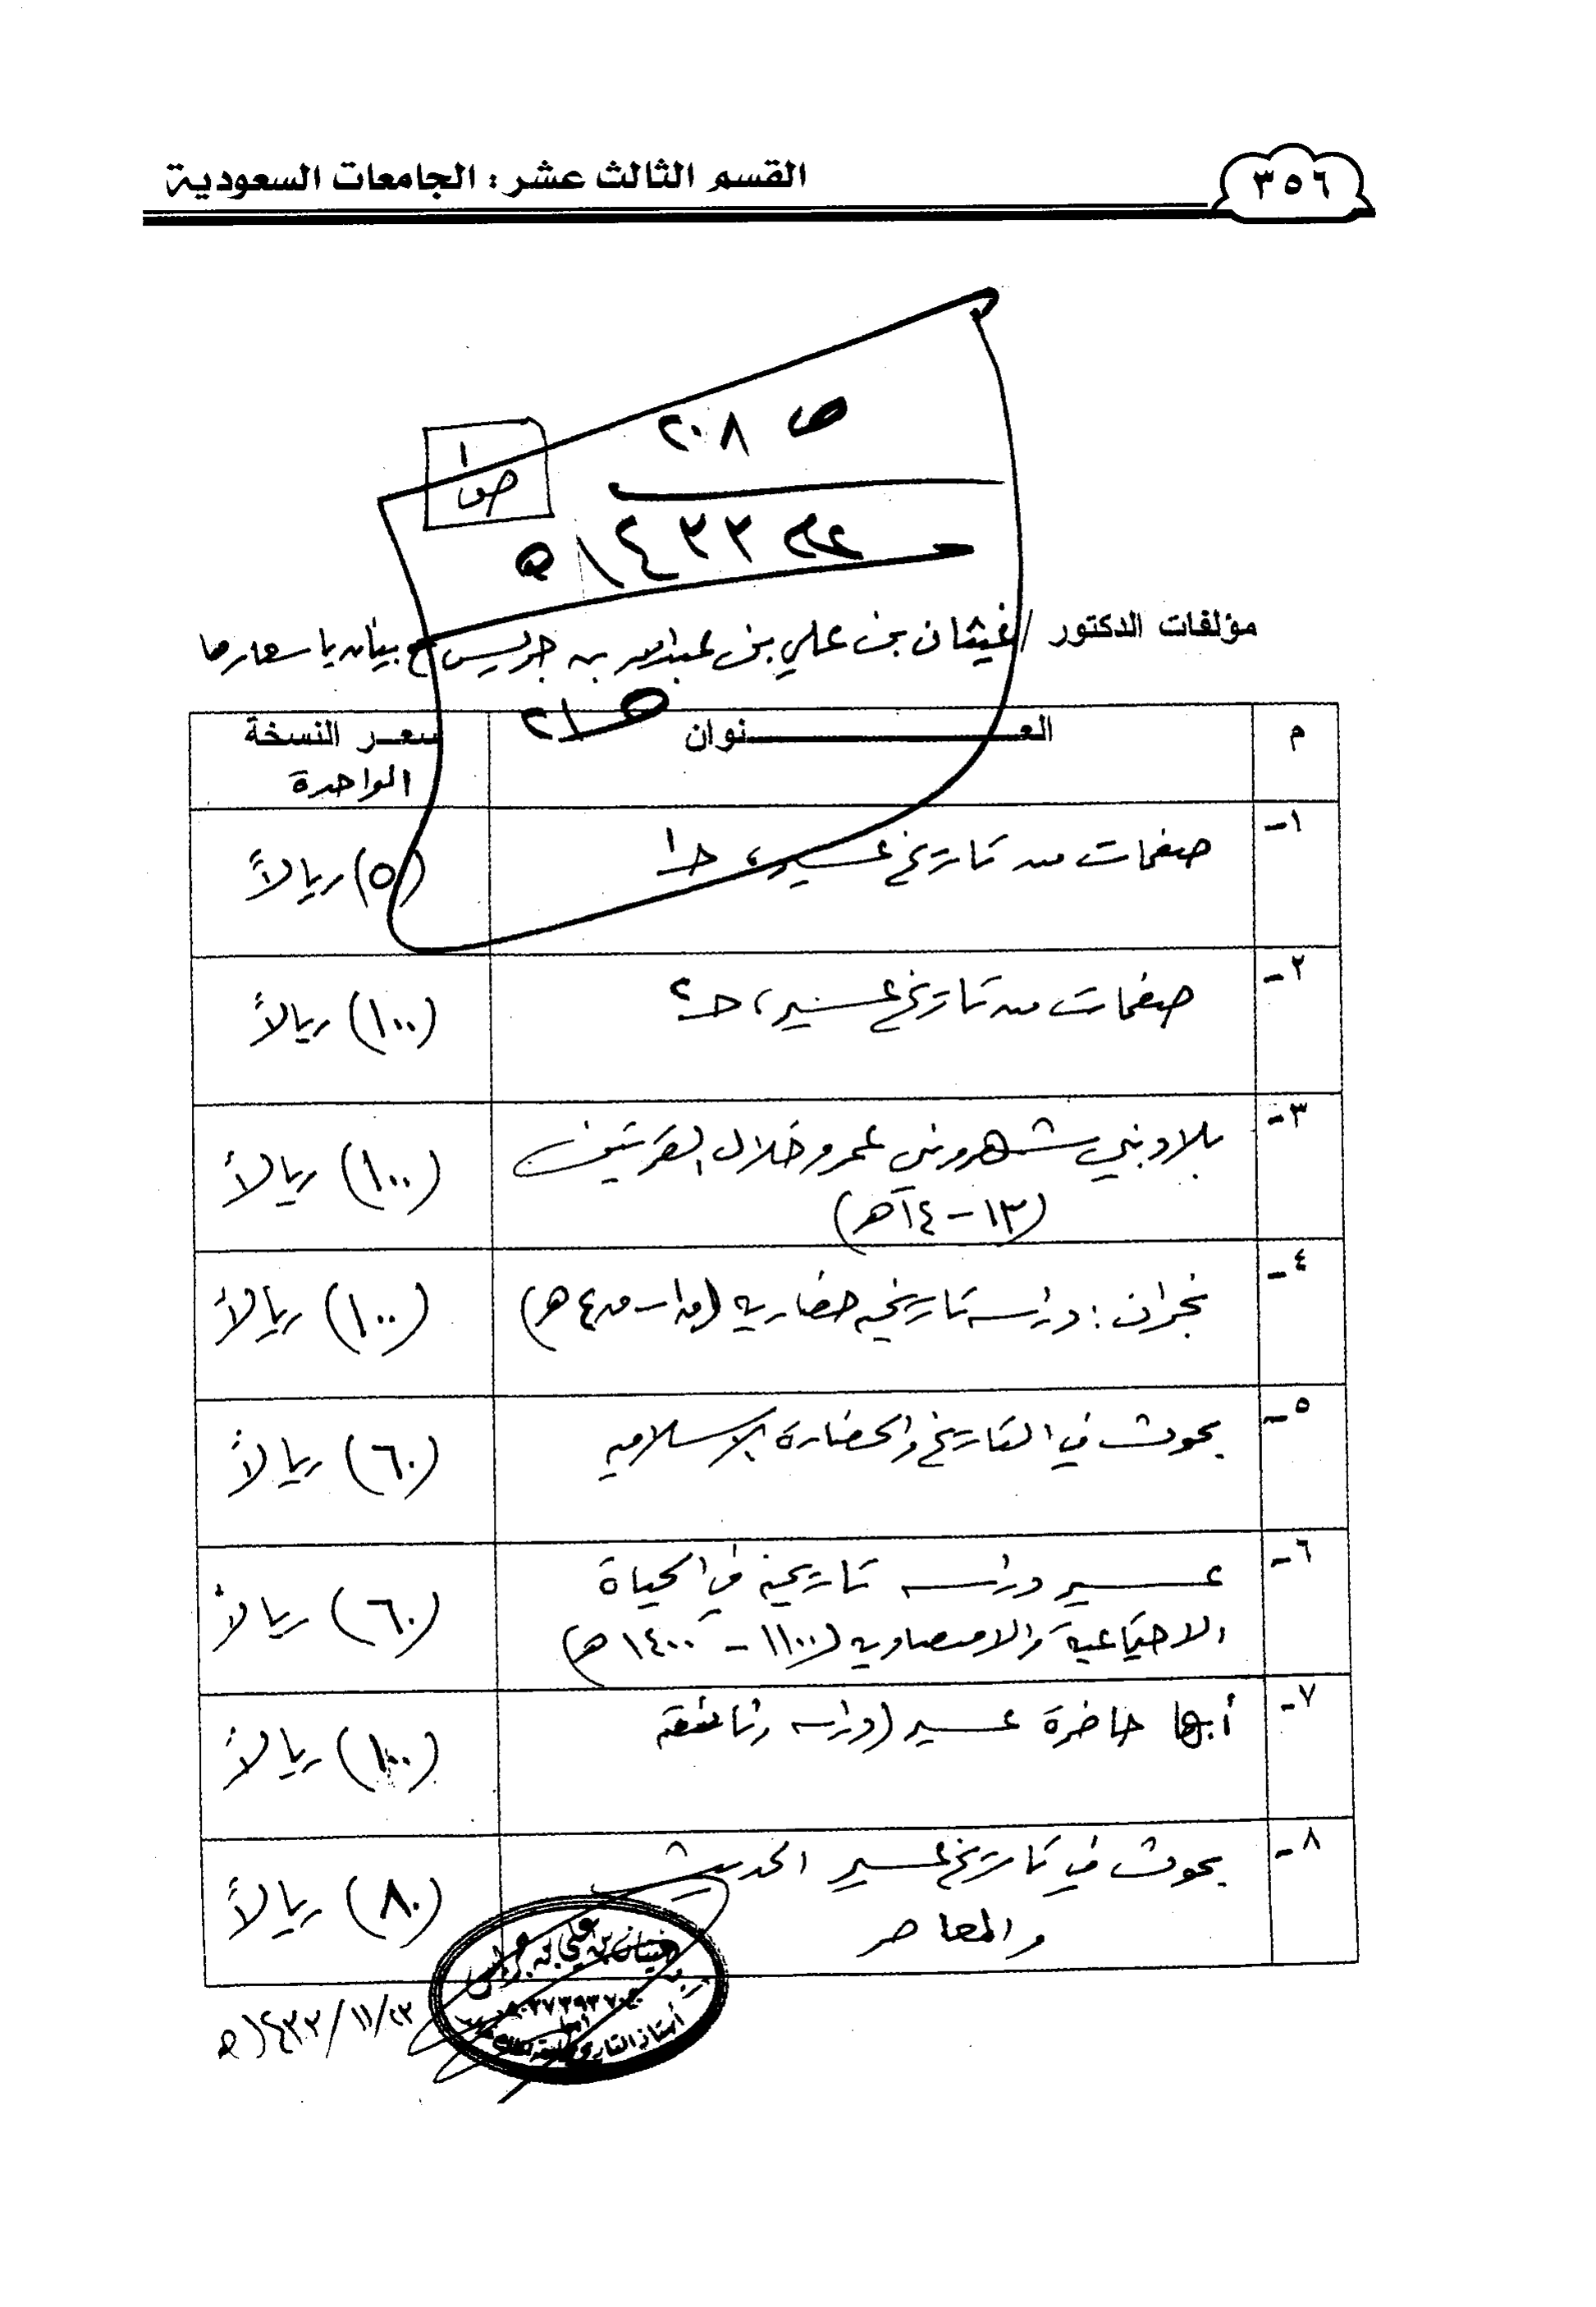 ٣٥٦
القسم الثالث عشر : الجامعات السعودية
ص ٢٠٨
ص١
١٤٣٣ هـ
مؤلفات الدكتور / غيثان بن علي بن عبدالله بن جريس مع بيان بأسعارها
م العـــــنوان سعـر النسخة الواحدة
١- صفحات من تاريخ عسير، جـ١ (٥) ريالاً
٢- صفحات من تاريخ عسير، جـ٢ (١٠٠) ريالاً
٣- بلاد بني شهر وبني عمرو خلال القرنين (١٣-١٤هـ) (١٠٠) ريالاً
٤- نجران : دراسة تاريخية حضارية (ق١-ق٤هـ) (١٠٠) ريالاً
٥- بحوث في التاريخ والحضارة الإسلامية (٦٠) ريالاً
٦- عسير دراسة تاريخية في الحياة
الاجتماعية والاقتصادية (١١٠٠-١٤٠٠هـ) (٦٠) ريالاً
٧- أبها حاضرة عسير (دراسة وثائقية (١٠٠) ريالاً
٨- بحوث في تاريخ عسير الحديث
والمعاصر (٨٠) ريالاً
غيثان بن علي بن جريس
أستاذ التاريخ
١٤٣٣/١١/٢٣هـ